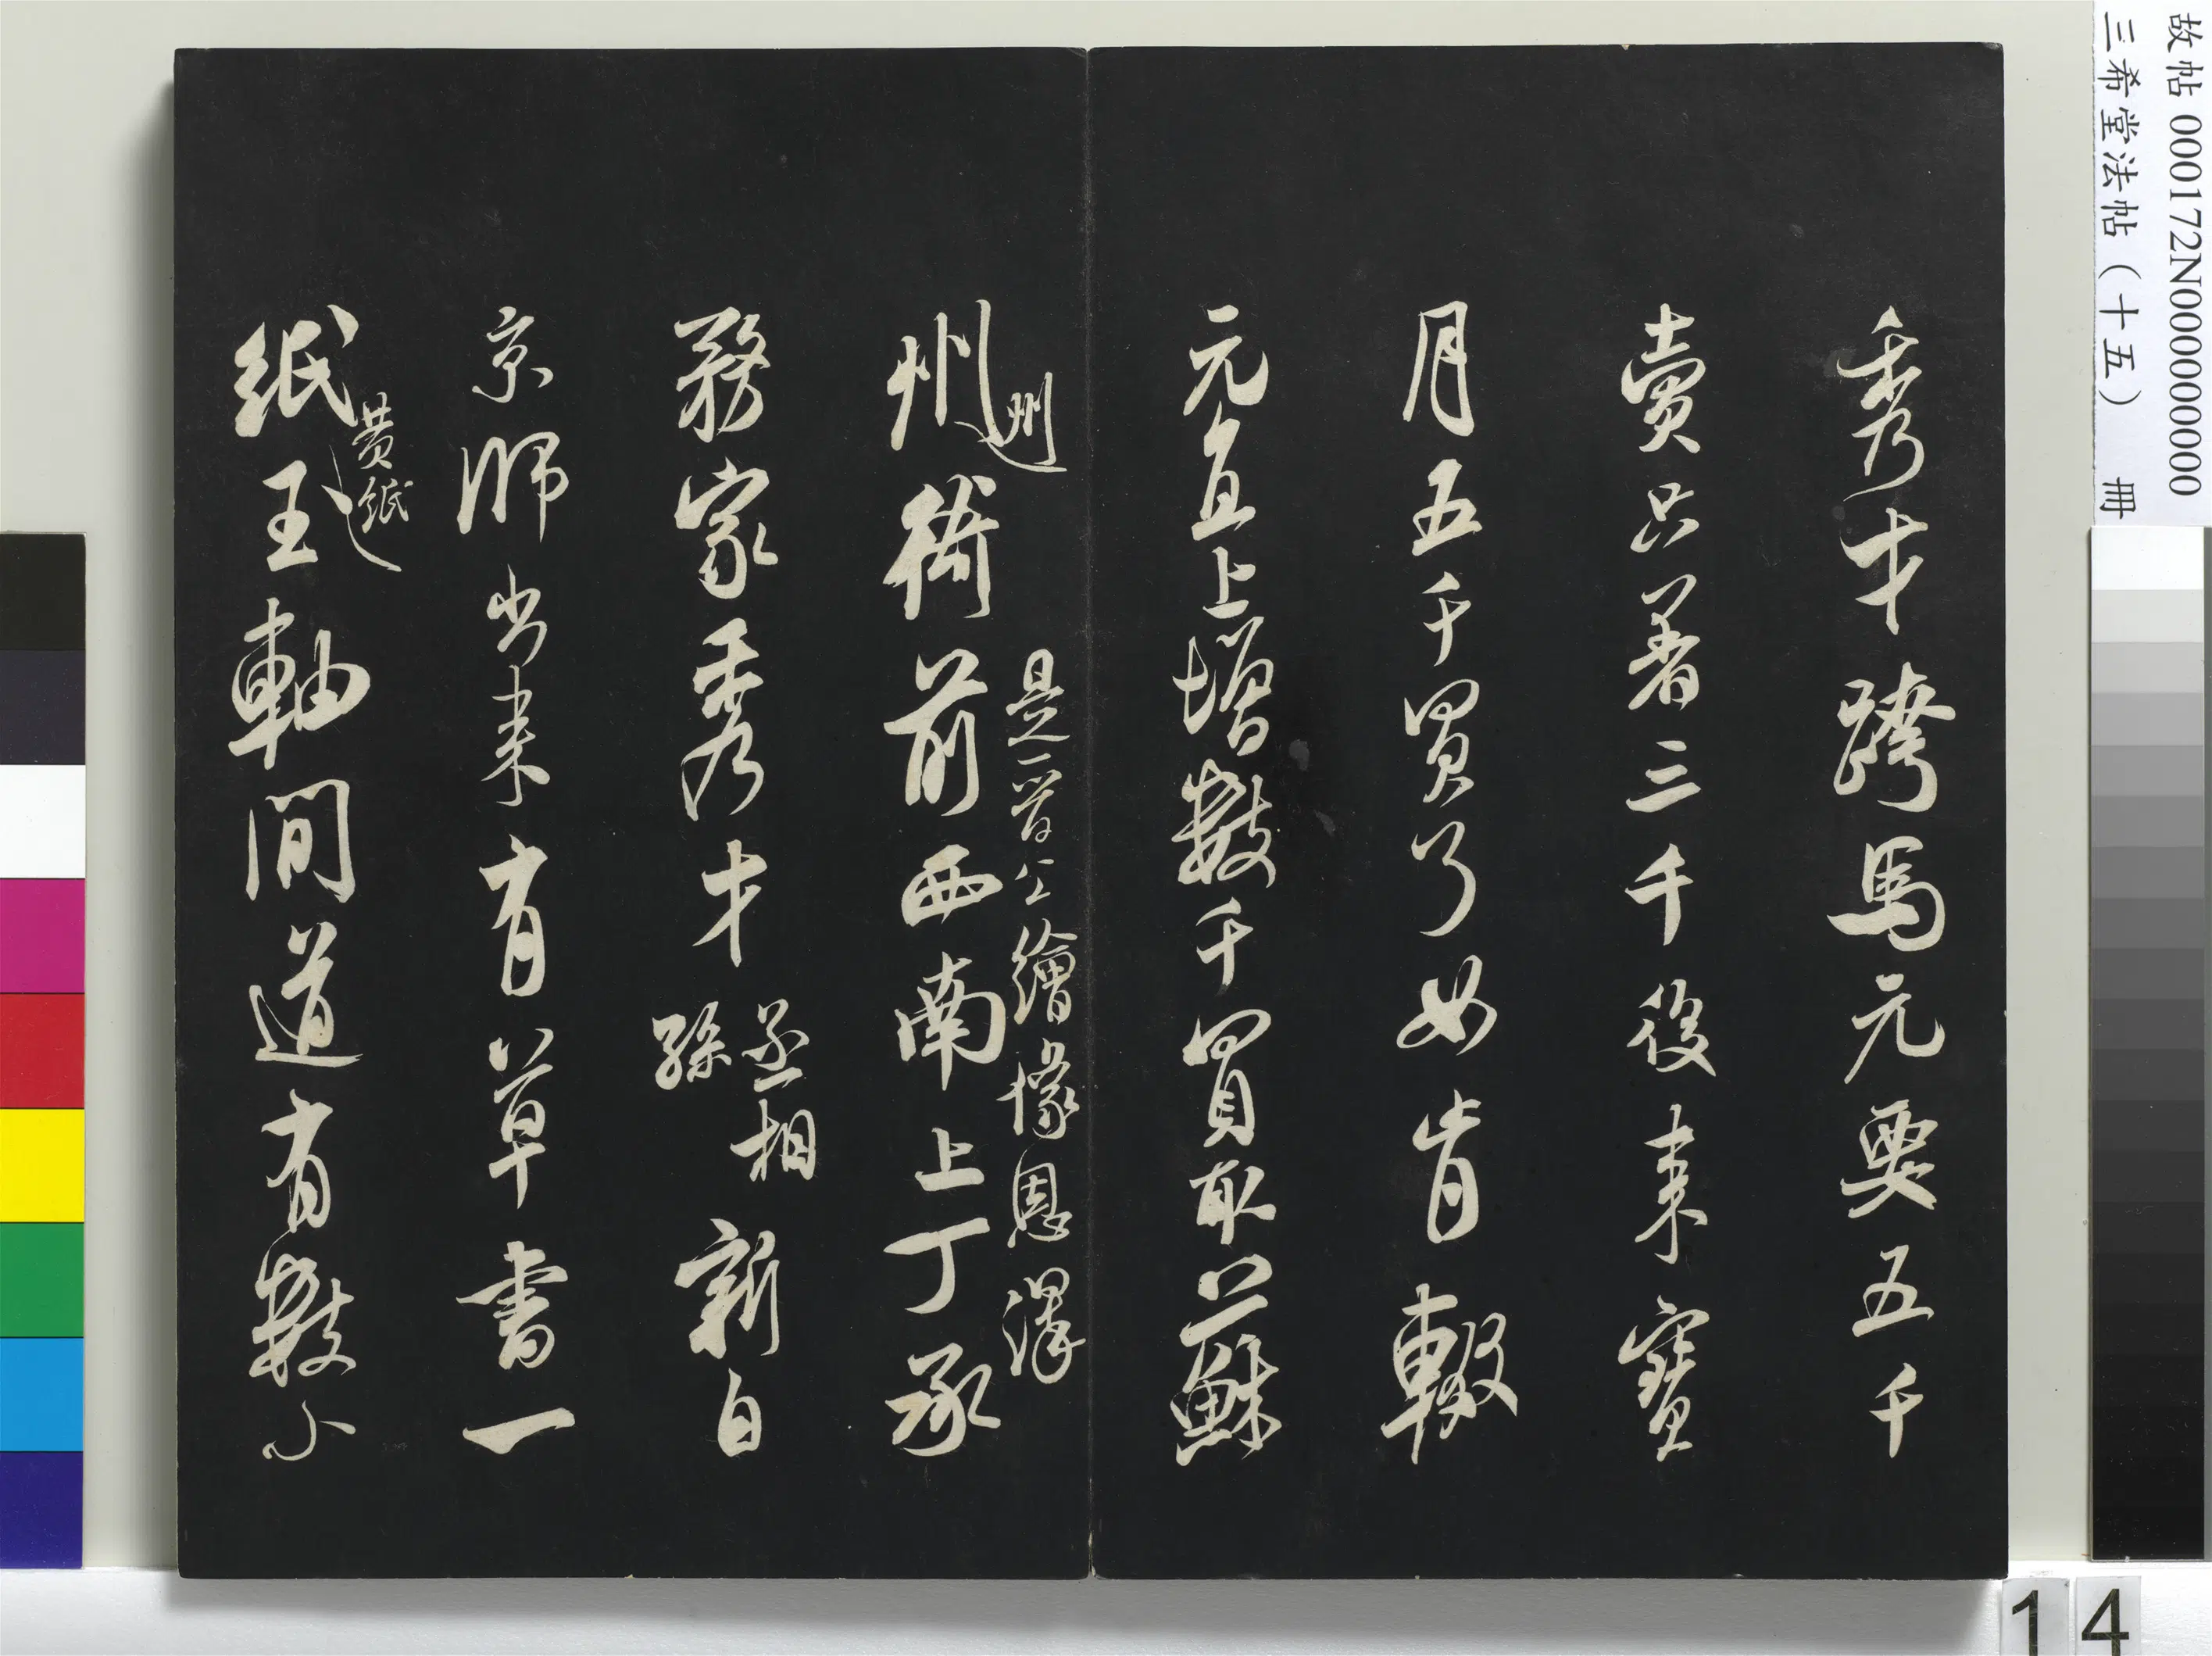 秀才跨馬元要五千
賣只著三千後来寶
月五千買了如肯輟
元直上增數千買取蘇
州
州衙前西南上丁承
是一晉公繪像恩澤
務家秀才
丞相
孫
新自
京師出来有草書一
紙
黄紙
玉軸間道有數小
故帖 000172N000000000
三希堂法帖（十五） 冊
14